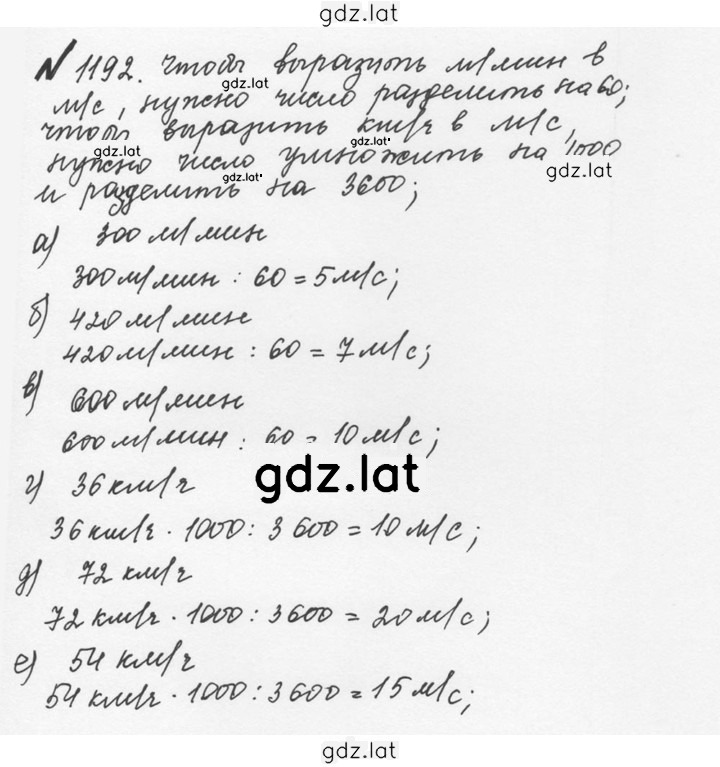 gdz.lat
№ 1192. Чтобы выразить м/мин в
gdz.lat
м/с, нужно число разделить на 60;
чтобы выразить км/ч в м/с,
gdz.lat gdz.lat
нужно число умножить на 1000
gdz.lat gdz.lat
и разделить на 3600;
а) 300 м/мин
300 м/мин : 60 = 5 м/с;
б) 420 м/мин
420 м/мин : 60 = 7 м/с;
в) 600 м/мин
600 м/мин : 60 = 10 м/с;
gdz.lat
г) 36 км/ч
36 км/ч · 1000 : 3600 = 10 м/с;
д) 72 км/ч
72 км/ч · 1000 : 3600 = 20 м/с;
е) 54 км/ч
54 км/ч · 1000 : 3600 = 15 м/с;
gdz.lat